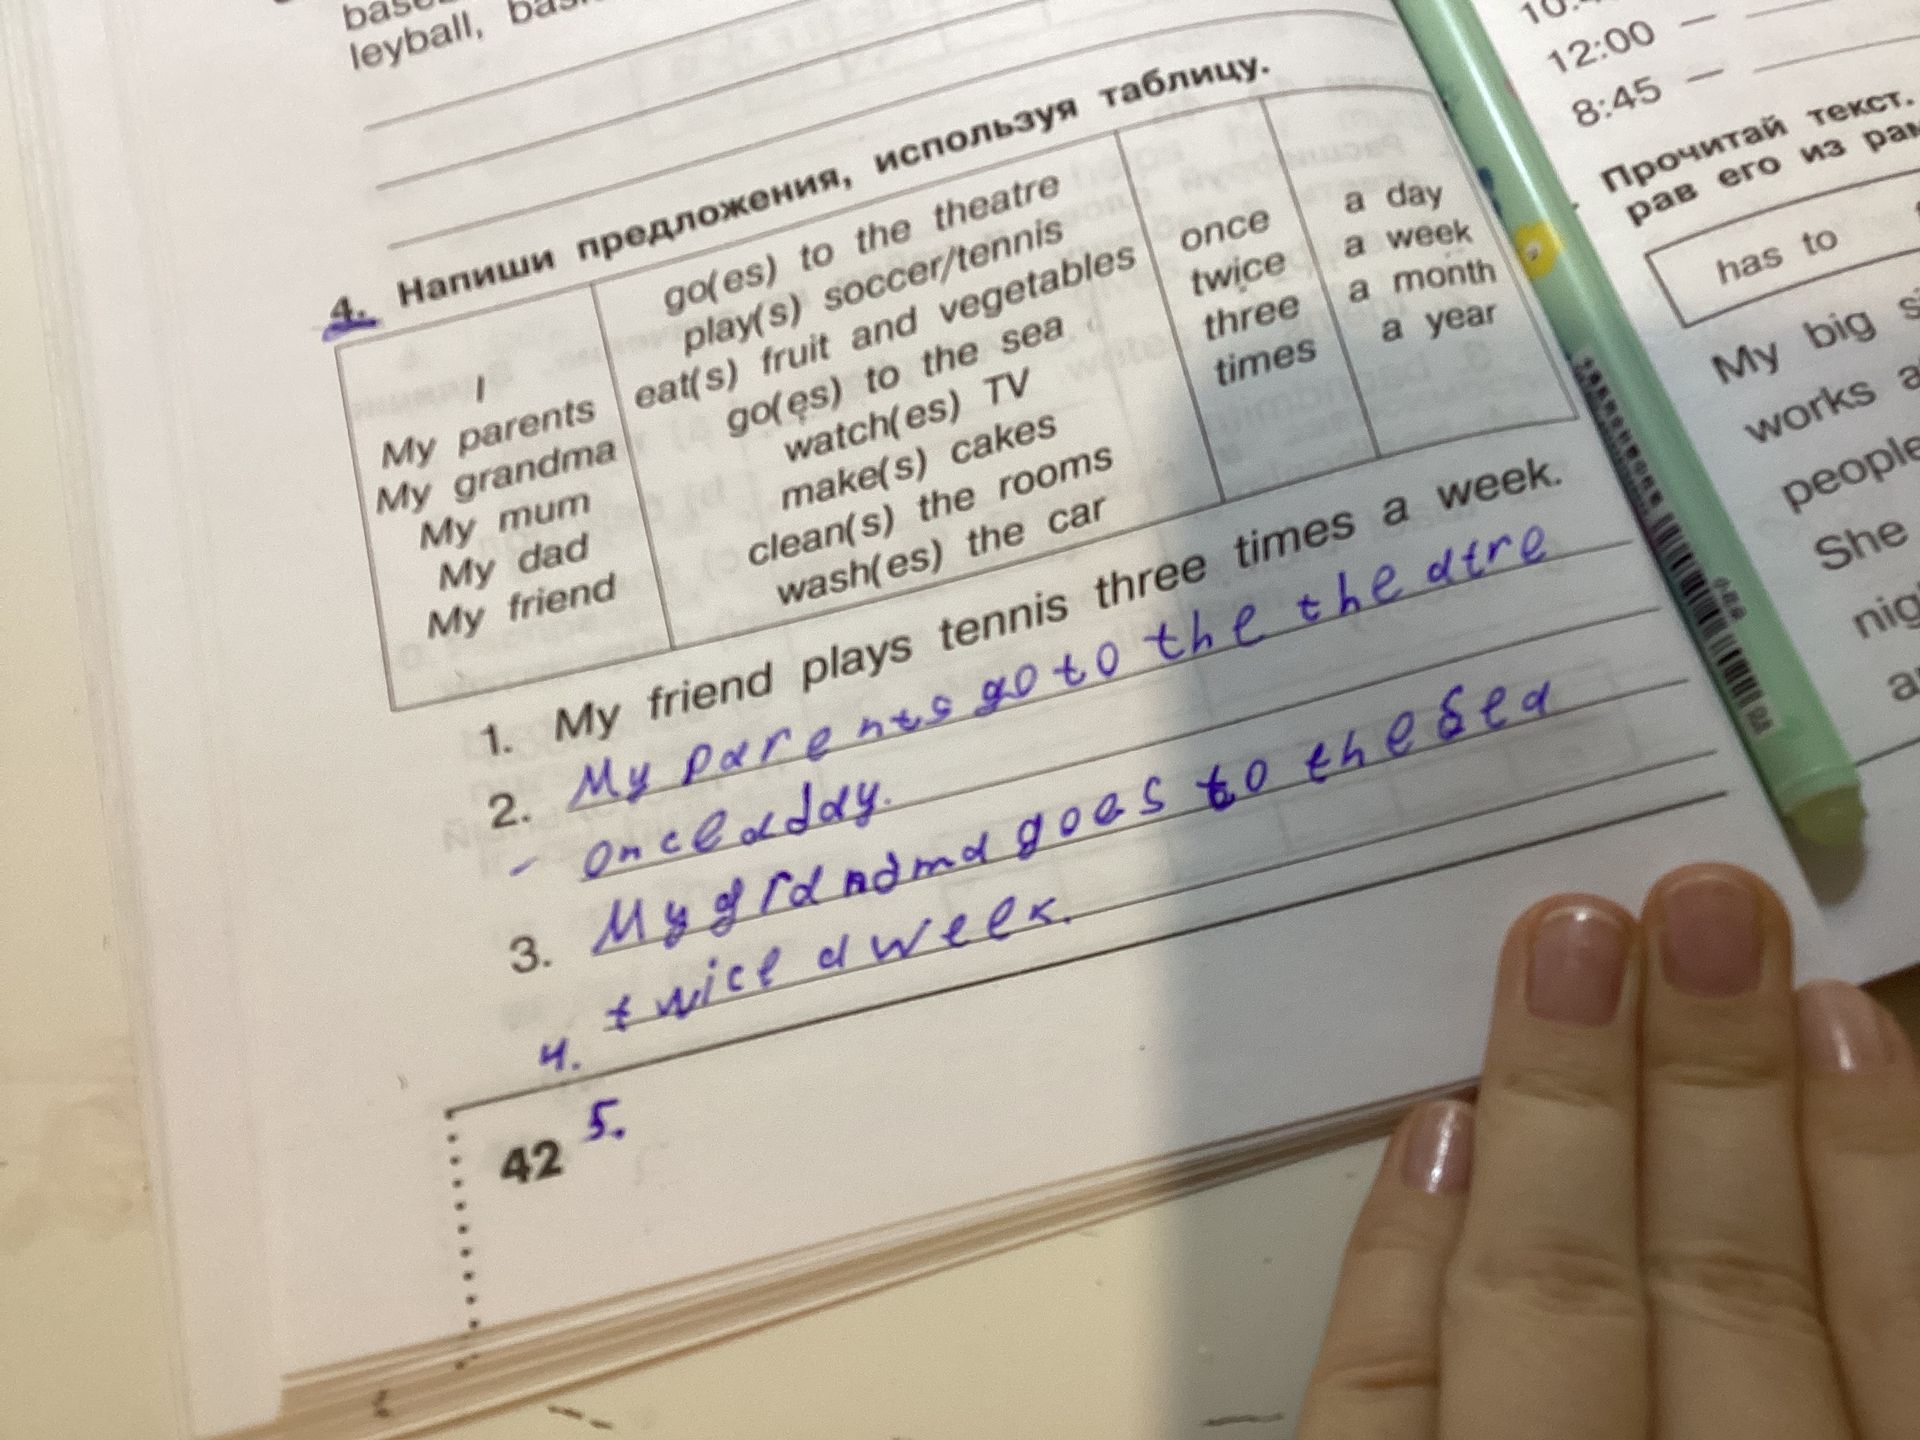 leyball,
4. Напиши предложения, используя таблицу.
I
My parents
My grandma
My mum
My dad
My friend
go(es) to the theatre
play(s) soccer/tennis
eat(s) fruit and vegetables
go(es) to the sea
watch(es) TV
make(s) cakes
clean(s) the rooms
wash(es) the car
once
twice
three
times
a day
a week
a month
a year
1. My friend plays tennis three times a week.
2. My parents go to the theatre
once a day.
3. My grandma goes to the sea
twice a week.
4.
5.
42
12:00 —
8:45 —
Прочитай текст.
рав его из
has to
My big
works
people
She